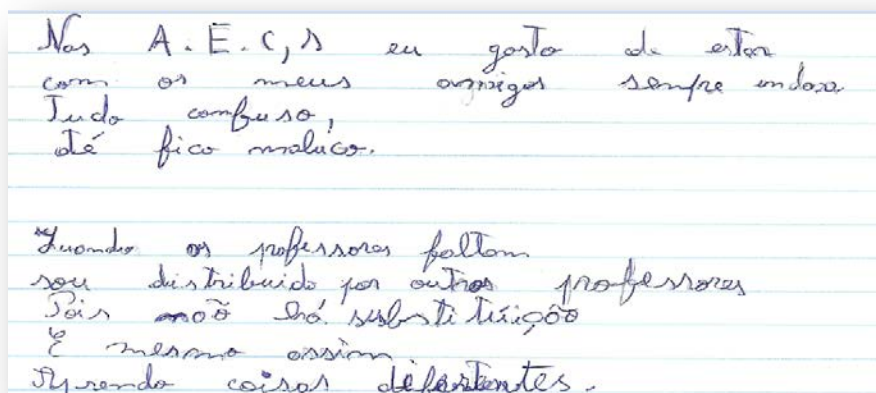 Nas A.E.C,s eu gosto de estar
com os meus amigos sempre
Tudo confuso,
até fico maluco.
Quando os professores faltam
sou distribuido por outros professores
Pois não há substituição
E mesmo assim
Aprendo coisas diferentes.